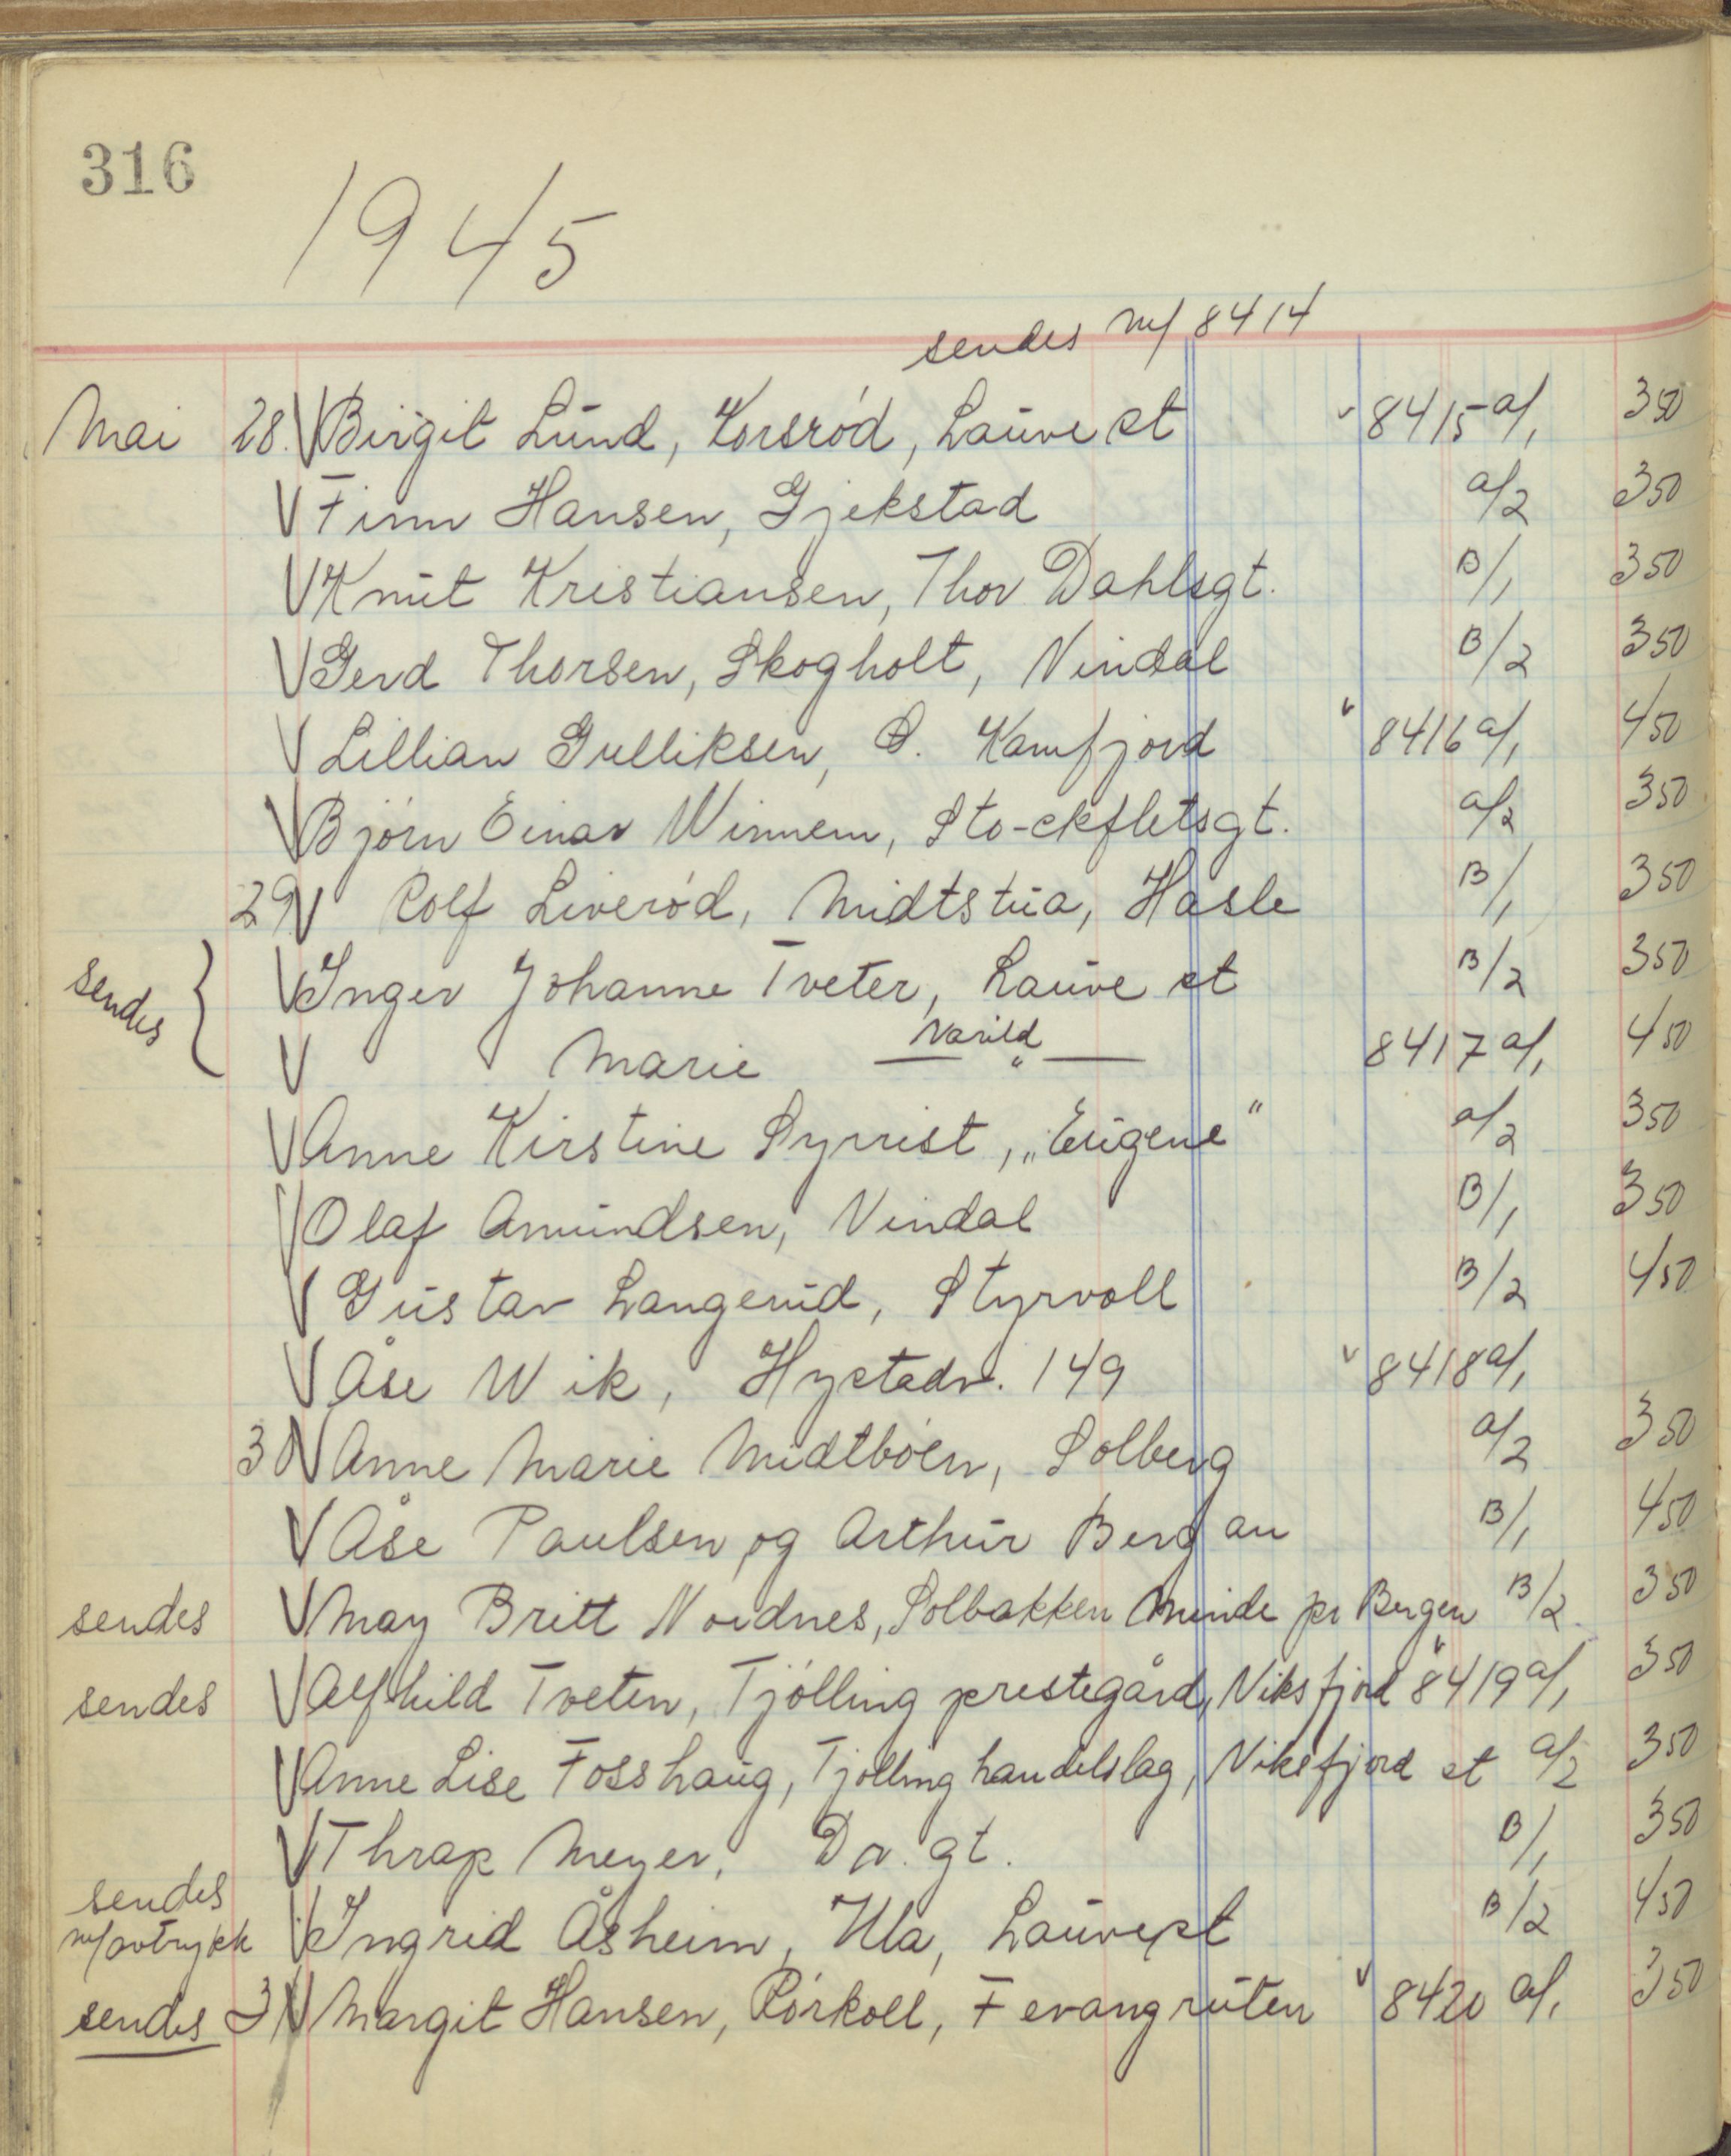 316
1945
sendes m/ 8414
Mai 28. V Birgit Lund, Korsrød, Lauve st v 8415 a/1 350
V Finn Hansen, Gjekstad a/2 350
V Knut Kristiansen, Thor Dahlsgt. B/1 350
V Gerd Thorsen, Skogholt, Vindal B/2 350
V Lillian Gulliksen, S. Kamfjord v 8416 a/1 450
V Bjørn Einar Winnem, Sto-ckfletsgt. a/2 350
29 V Rolf Liverød, Midtstua, Hasle B/1 350
sendes { V Inger Johanne Tveter, Lauve st B/2 350
V Marie Narild — " — 8417 a/1 450
V Anne Kirstine Syrrist, „Eugene“ a/2 350
V Olaf Amundsen, Vindal B/1 350
V Gustav Langerud, Styrvoll B/2 450
V Åse Wik, Hystadv. 149 v 8418 a/1
30 V Anne Marie Midtbøen, Solberg a/2 350
V Åse Paulsen og Arthur Bergan B/1 450
sendes V May Britt Nordnes, Solbakken Minde pr Bergen B/2 350
sendes V Alfhild Tveten, Tjølling prestegård, Viksfjord v 8419 a/1 350
V Anne Lise Fosshaug, Tjølling handelslag, Viksfjord st a/2 350
V Thrap Meyer, Dr. gt. B/1 350
sendes
m/avtrykk V Ingrid Åsheim, Ula, Lauve st B/2 450
sendes 31 V Margit Hansen, Rørkoll, Fevangruten v 8420 a/1 350